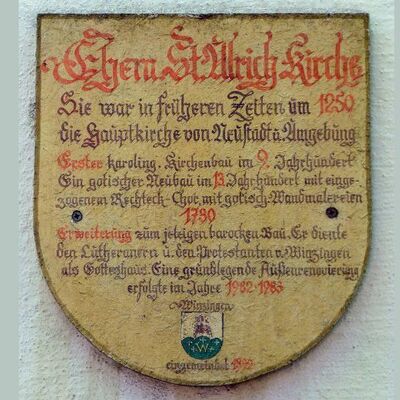 Ehem. St. Ulrich-Kirche
Sie war in früheren Zeiten um 1250
die Hauptkirche von Neustadt u. Umgebung
Erster karoling. Kirchenbau im 9. Jahrhundert
Ein gotischer Neubau im 13. Jahrhundert mit einge-
zogenem Rechteck-Chor, mit gotisch. Wandmalereien
1780
Erweiterung zum jetzigen barocken Bau. Er diente
den Lutheranern u. den Protestanten v. Winzingen
als Gotteshaus. Eine grundlegende Außenrenovierung
erfolgte im Jahre 1982-1983
Winzingen
W
eingemeindet 1892